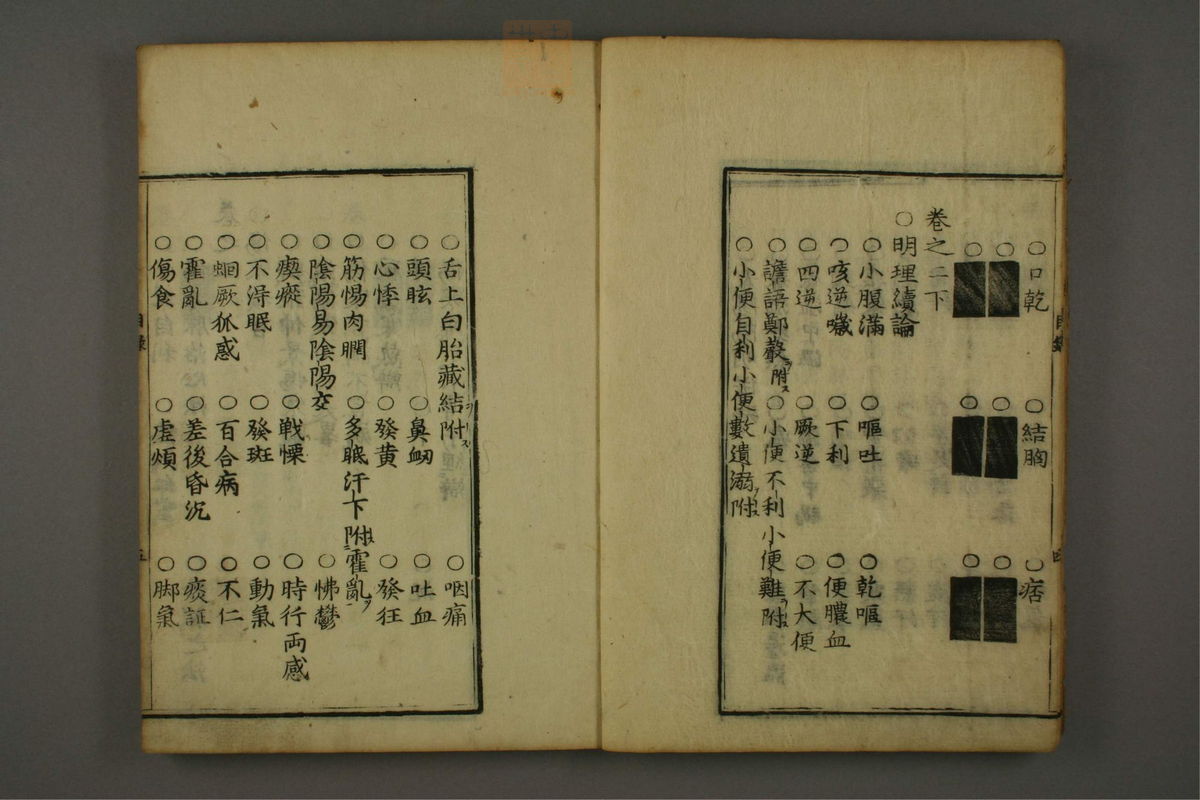 ○口乾 ○結胸 ○痞
○ ○ ○
○ ○ ○
卷之二下
○明理續論
○小腹滿 ○嘔吐 ○乾嘔
○咳逆噦 ○下利 ○便膿血
○四逆 ○厥逆 ○不大便
○譫語鄭聲附ス ○小便不利小便難附
○小便自利小便數遺溺附
目錄 四
○舌上白胎藏結附 ○咽痛
○頭眩 ○鼻衂 ○吐血
○心悸 ○發黄 ○發狂
○筋惕肉瞤 ○多眠汗下附霍亂
○陰陽易陰陽交 ○怫鬱
○瘈瘲 ○戰慄 ○時行両感
○不得眠 ○發斑 ○動氣
○蛔厥狐惑 ○百合病 ○不仁
○霍亂 ○差後昏沉 ○痰証
○傷食 ○虚煩 ○脚氣
目錄 五